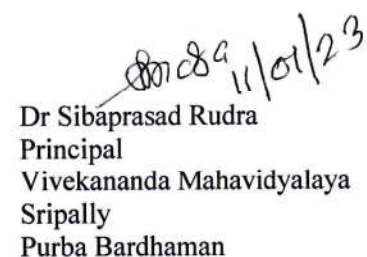 11/01/23
Dr Sibaprasad Rudra
Principal
Vivekananda Mahavidyalaya
Sripally
Purba Bardhaman